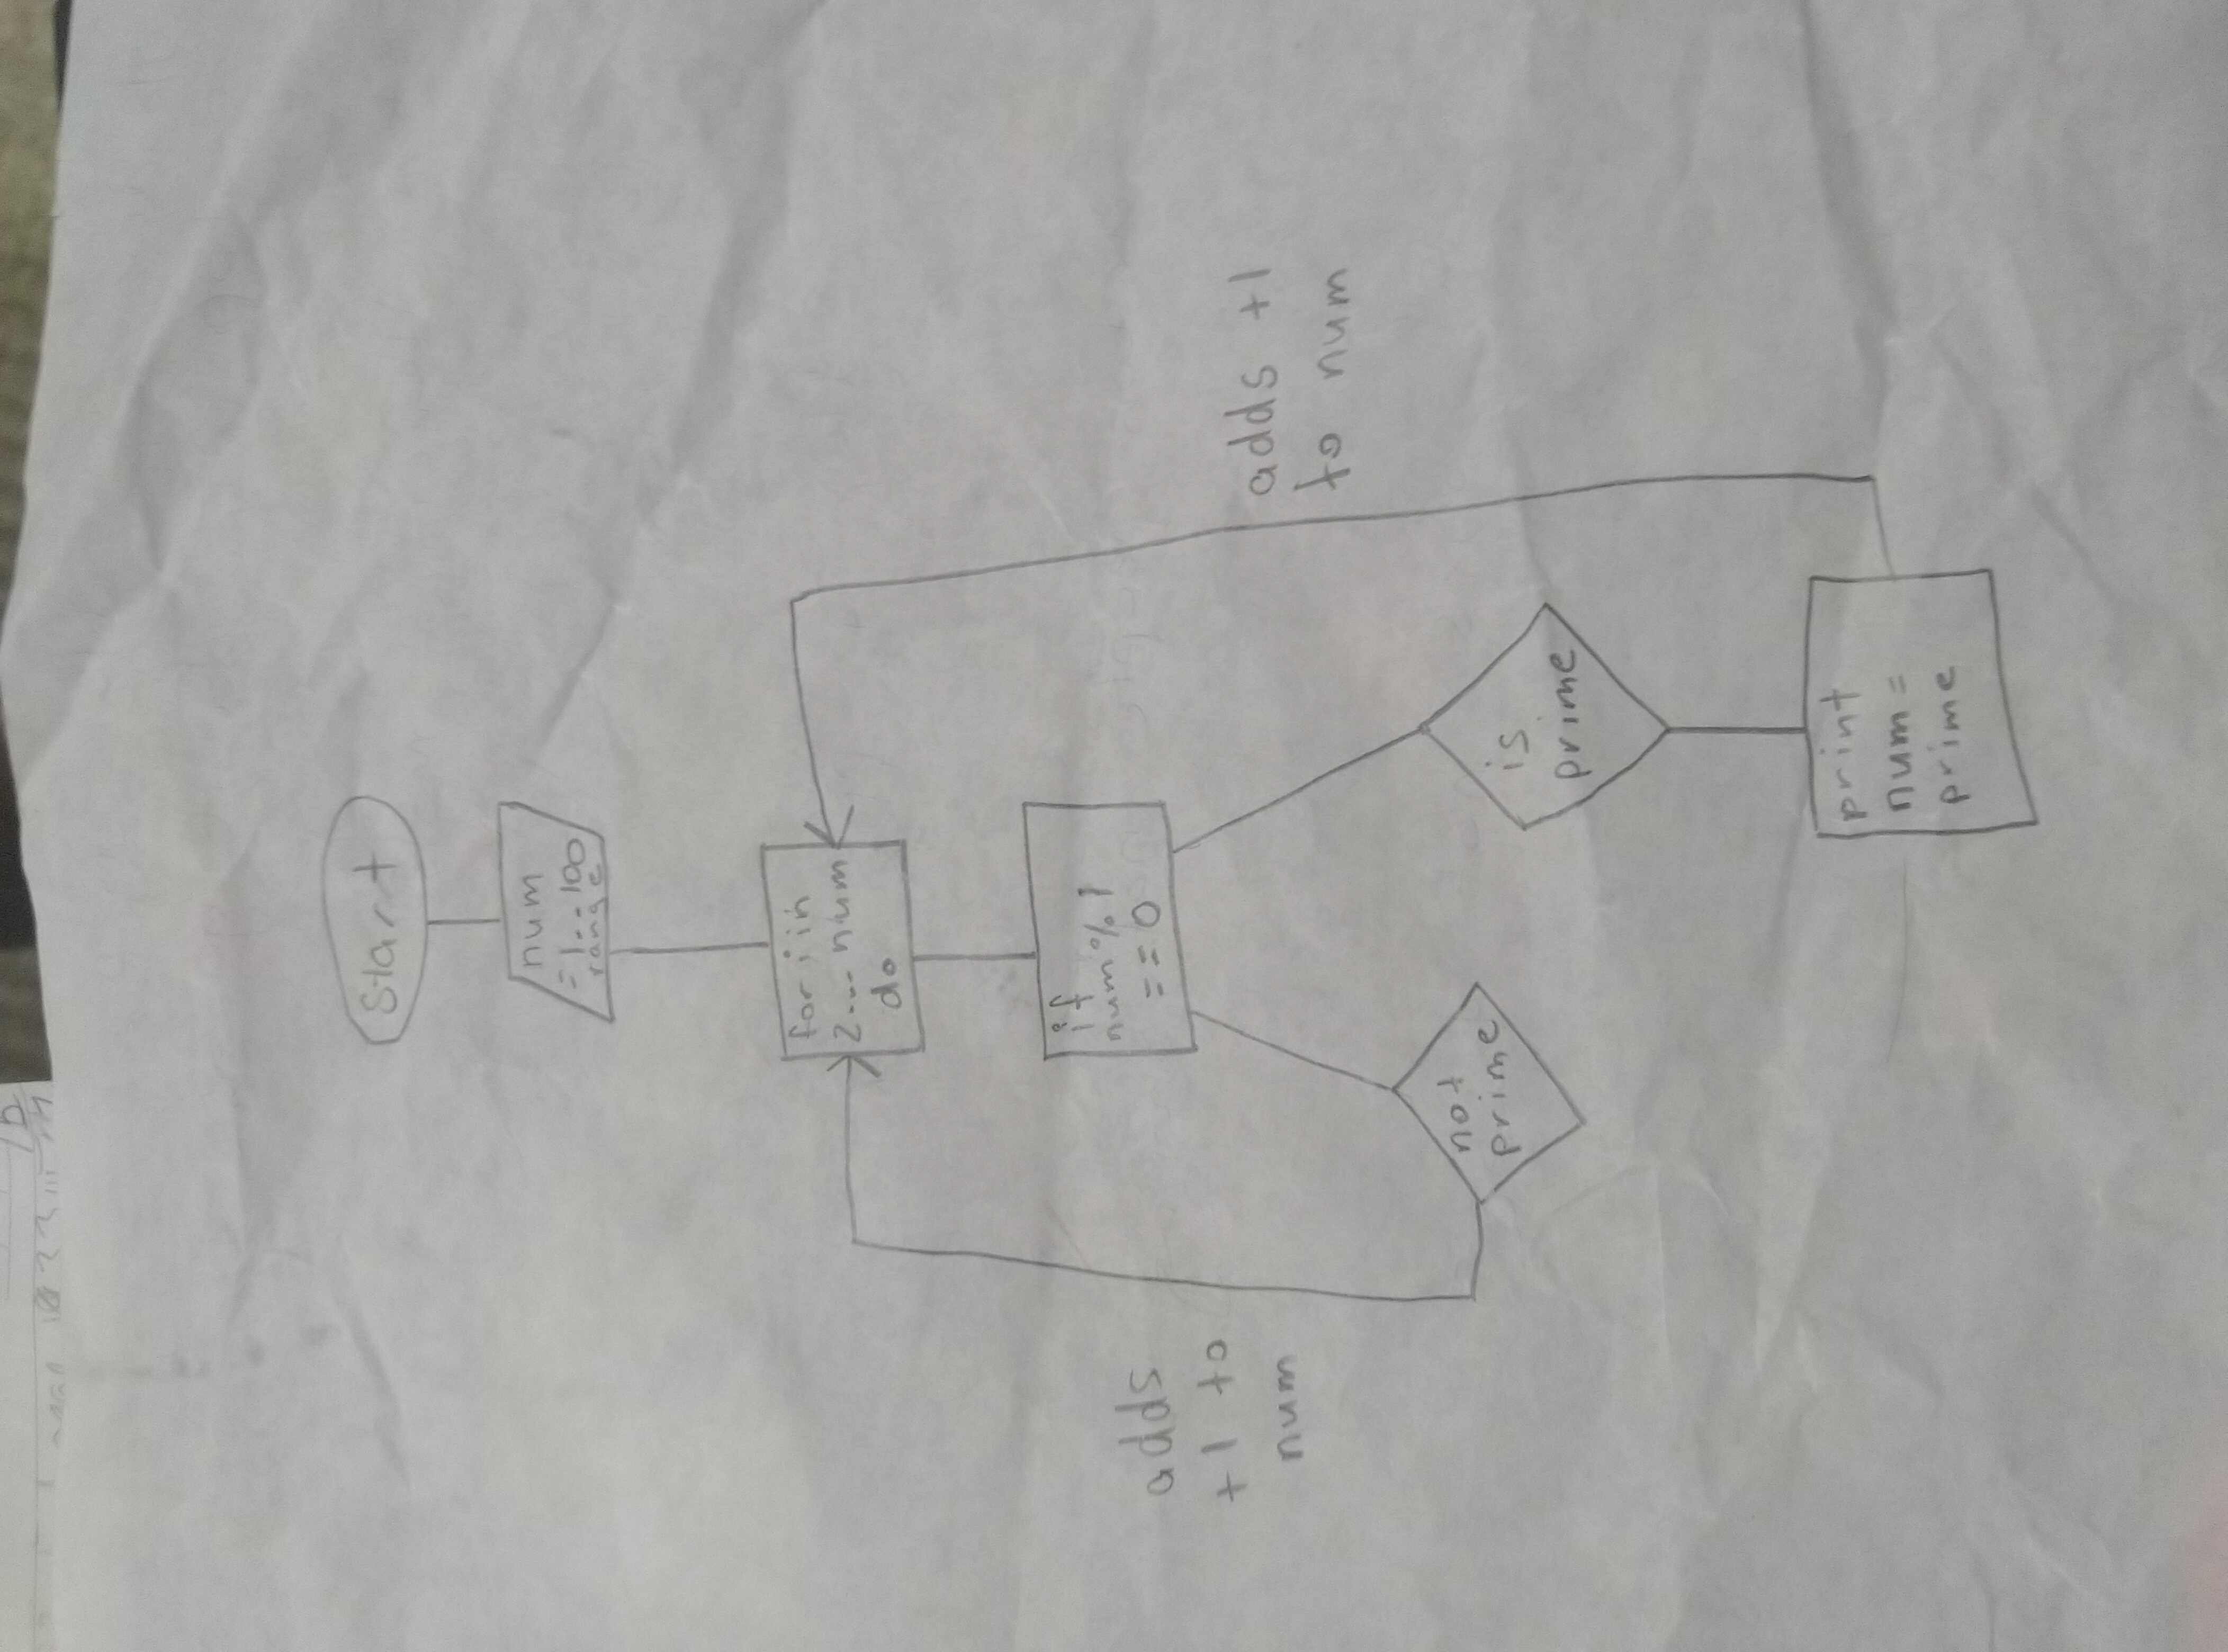 Start
num
=1..100
range
for i in
2... num
do
if
num%1
==0
adds
+1 to
num
adds +1
to num
not
prime
is
prime
print
num =
prime